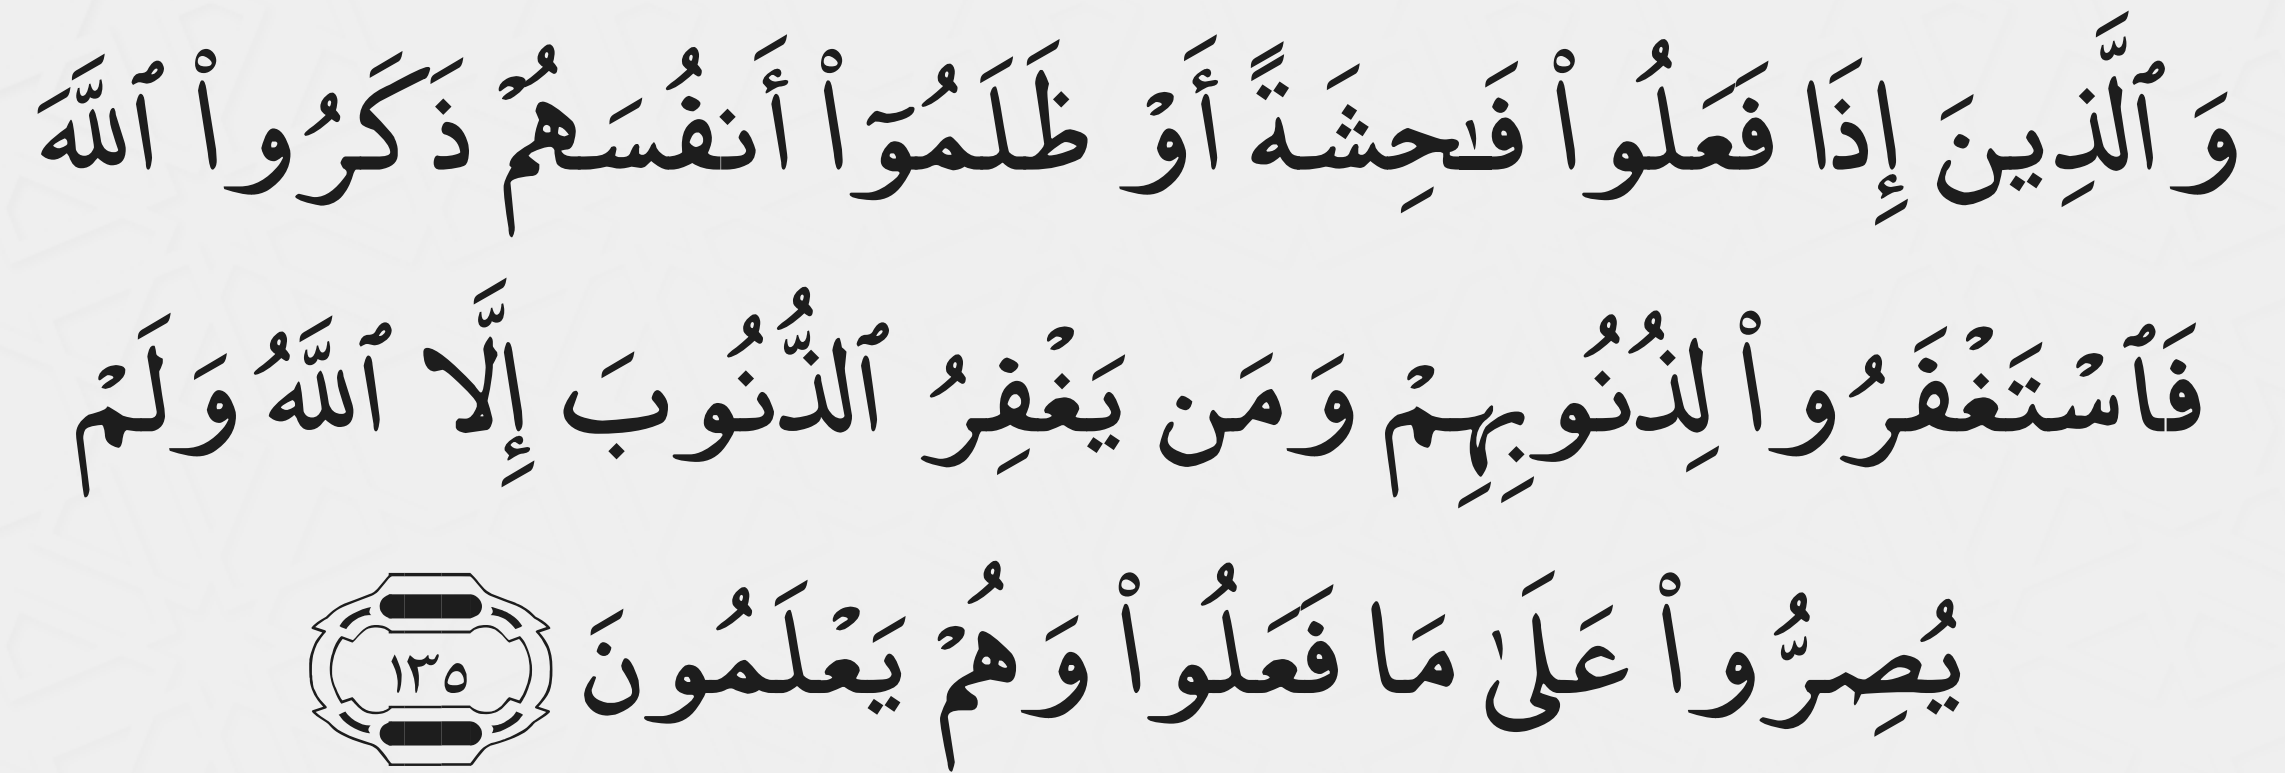 وَٱلَّذِينَ إِذَا فَعَلُوا۟ فَـٰحِشَةً أَوْ ظَلَمُوٓا۟ أَنفُسَهُمْ ذَكَرُوا۟ ٱللَّهَ
فَٱسْتَغْفَرُوا۟ لِذُنُوبِهِمْ وَمَن يَغْفِرُ ٱلذُّنُوبَ إِلَّا ٱللَّهُ وَلَمْ
يُصِرُّوا۟ عَلَىٰ مَا فَعَلُوا۟ وَهُمْ يَعْلَمُونَ ١٣٥